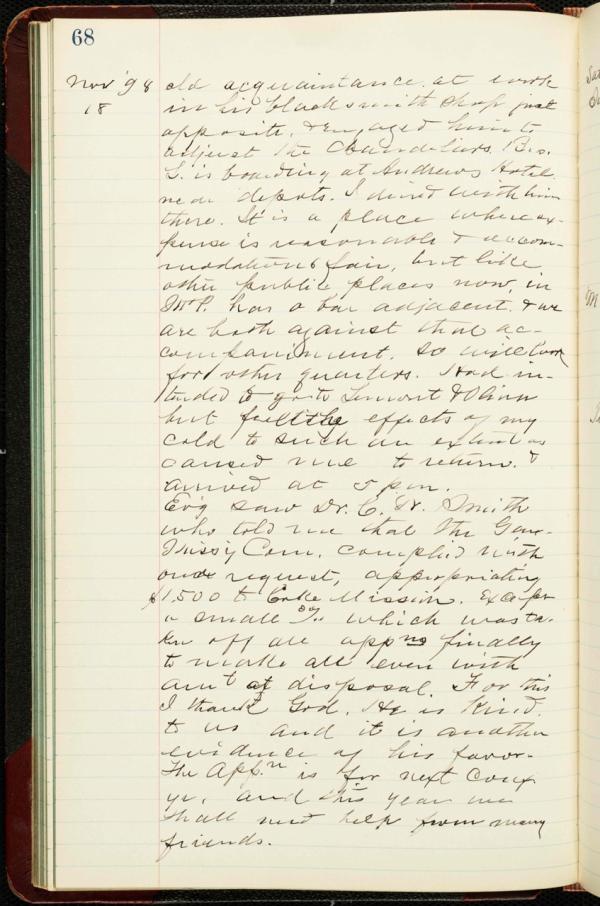 68
Nov '98 old acquaintance at work
18 in his blacksmith shop just
opposite, & engaged him to
adjust the Chandeliers. Bro.
L. is boarding at Andrews Hotel
near depots. I dined with him
there. It is a place where ex-
pense is reasonable & accom-
modations fair, but like
other public places now, in
Mt P. has a bar adjacent. & we
are both against that ac-
companiment. so will look
for other quarters. Had in-
tended to go to Lemont &
but feel the effects of my
cold to such an extent as
caused me to return. &
arrived at 5 pm.
Ev'g saw Dr. C. W. Smith
who told me that the Gen.
Miss'y Com. complied with
our request, appropriating
$1,500 to Coke Mission. Except
a small % which was ta-
ken off all appns finally
to make all even with
amt at disposal. For this
I thank God. He is Kind
to us and it is another
evidence of his favor-
The Appn is for next Conf
yr, and this year we
shall need help from many
friends.